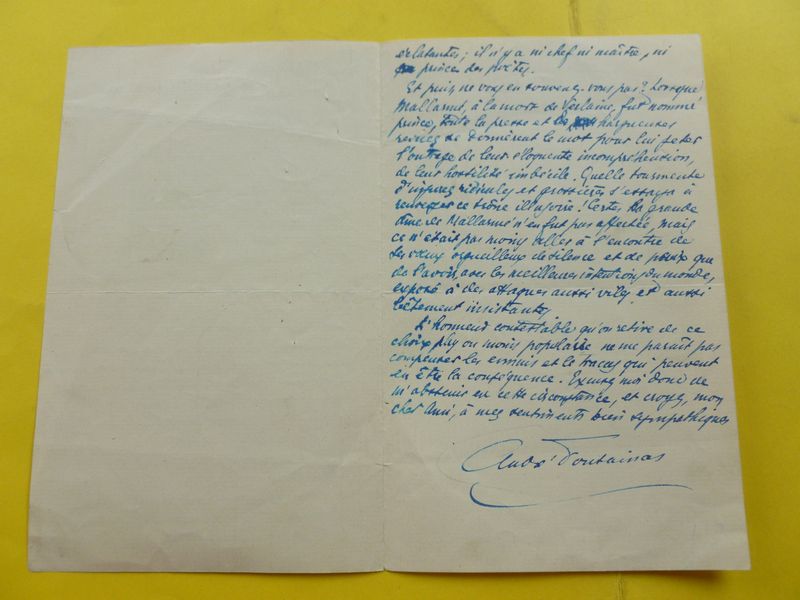 éclatantes ; il n'y a ni chef ni maître, ni
prince des poètes.
Et puis, ne vous en souvenez-vous pas ? Lorsque
Mallarmé, à la mort de Verlaine, fut nommé
prince, toute la presse et les hargneuses
revues se donnèrent le mot pour lui jeter
l'outrage de leur éloquente incompréhension,
de leur hostilité imbécile. Quelle tourmente
d'injures ridicules et grossières s'essaya à
renverser ce trône illusoire ! Certes la grande
âme de Mallarmé n'en fut pas affectée, mais
ce n'était pas moins aller à l'encontre de
ses vœux orgueilleux de silence et de paix que
de l'avoir, avec les meilleures intentions du monde,
exposé à des attaques aussi viles et aussi
bêtement insistantes.
L'honneur contestable qu'on retire de ce
choix plus ou moins populaire ne me paraît pas
compenser les ennuis et le tracas qui peuvent
en être la conséquence. Excusez moi donc de
m'abstenir en cette circonstance, et croyez, mon
cher ami, à mes sentiments bien sympathiques
André Fontainas